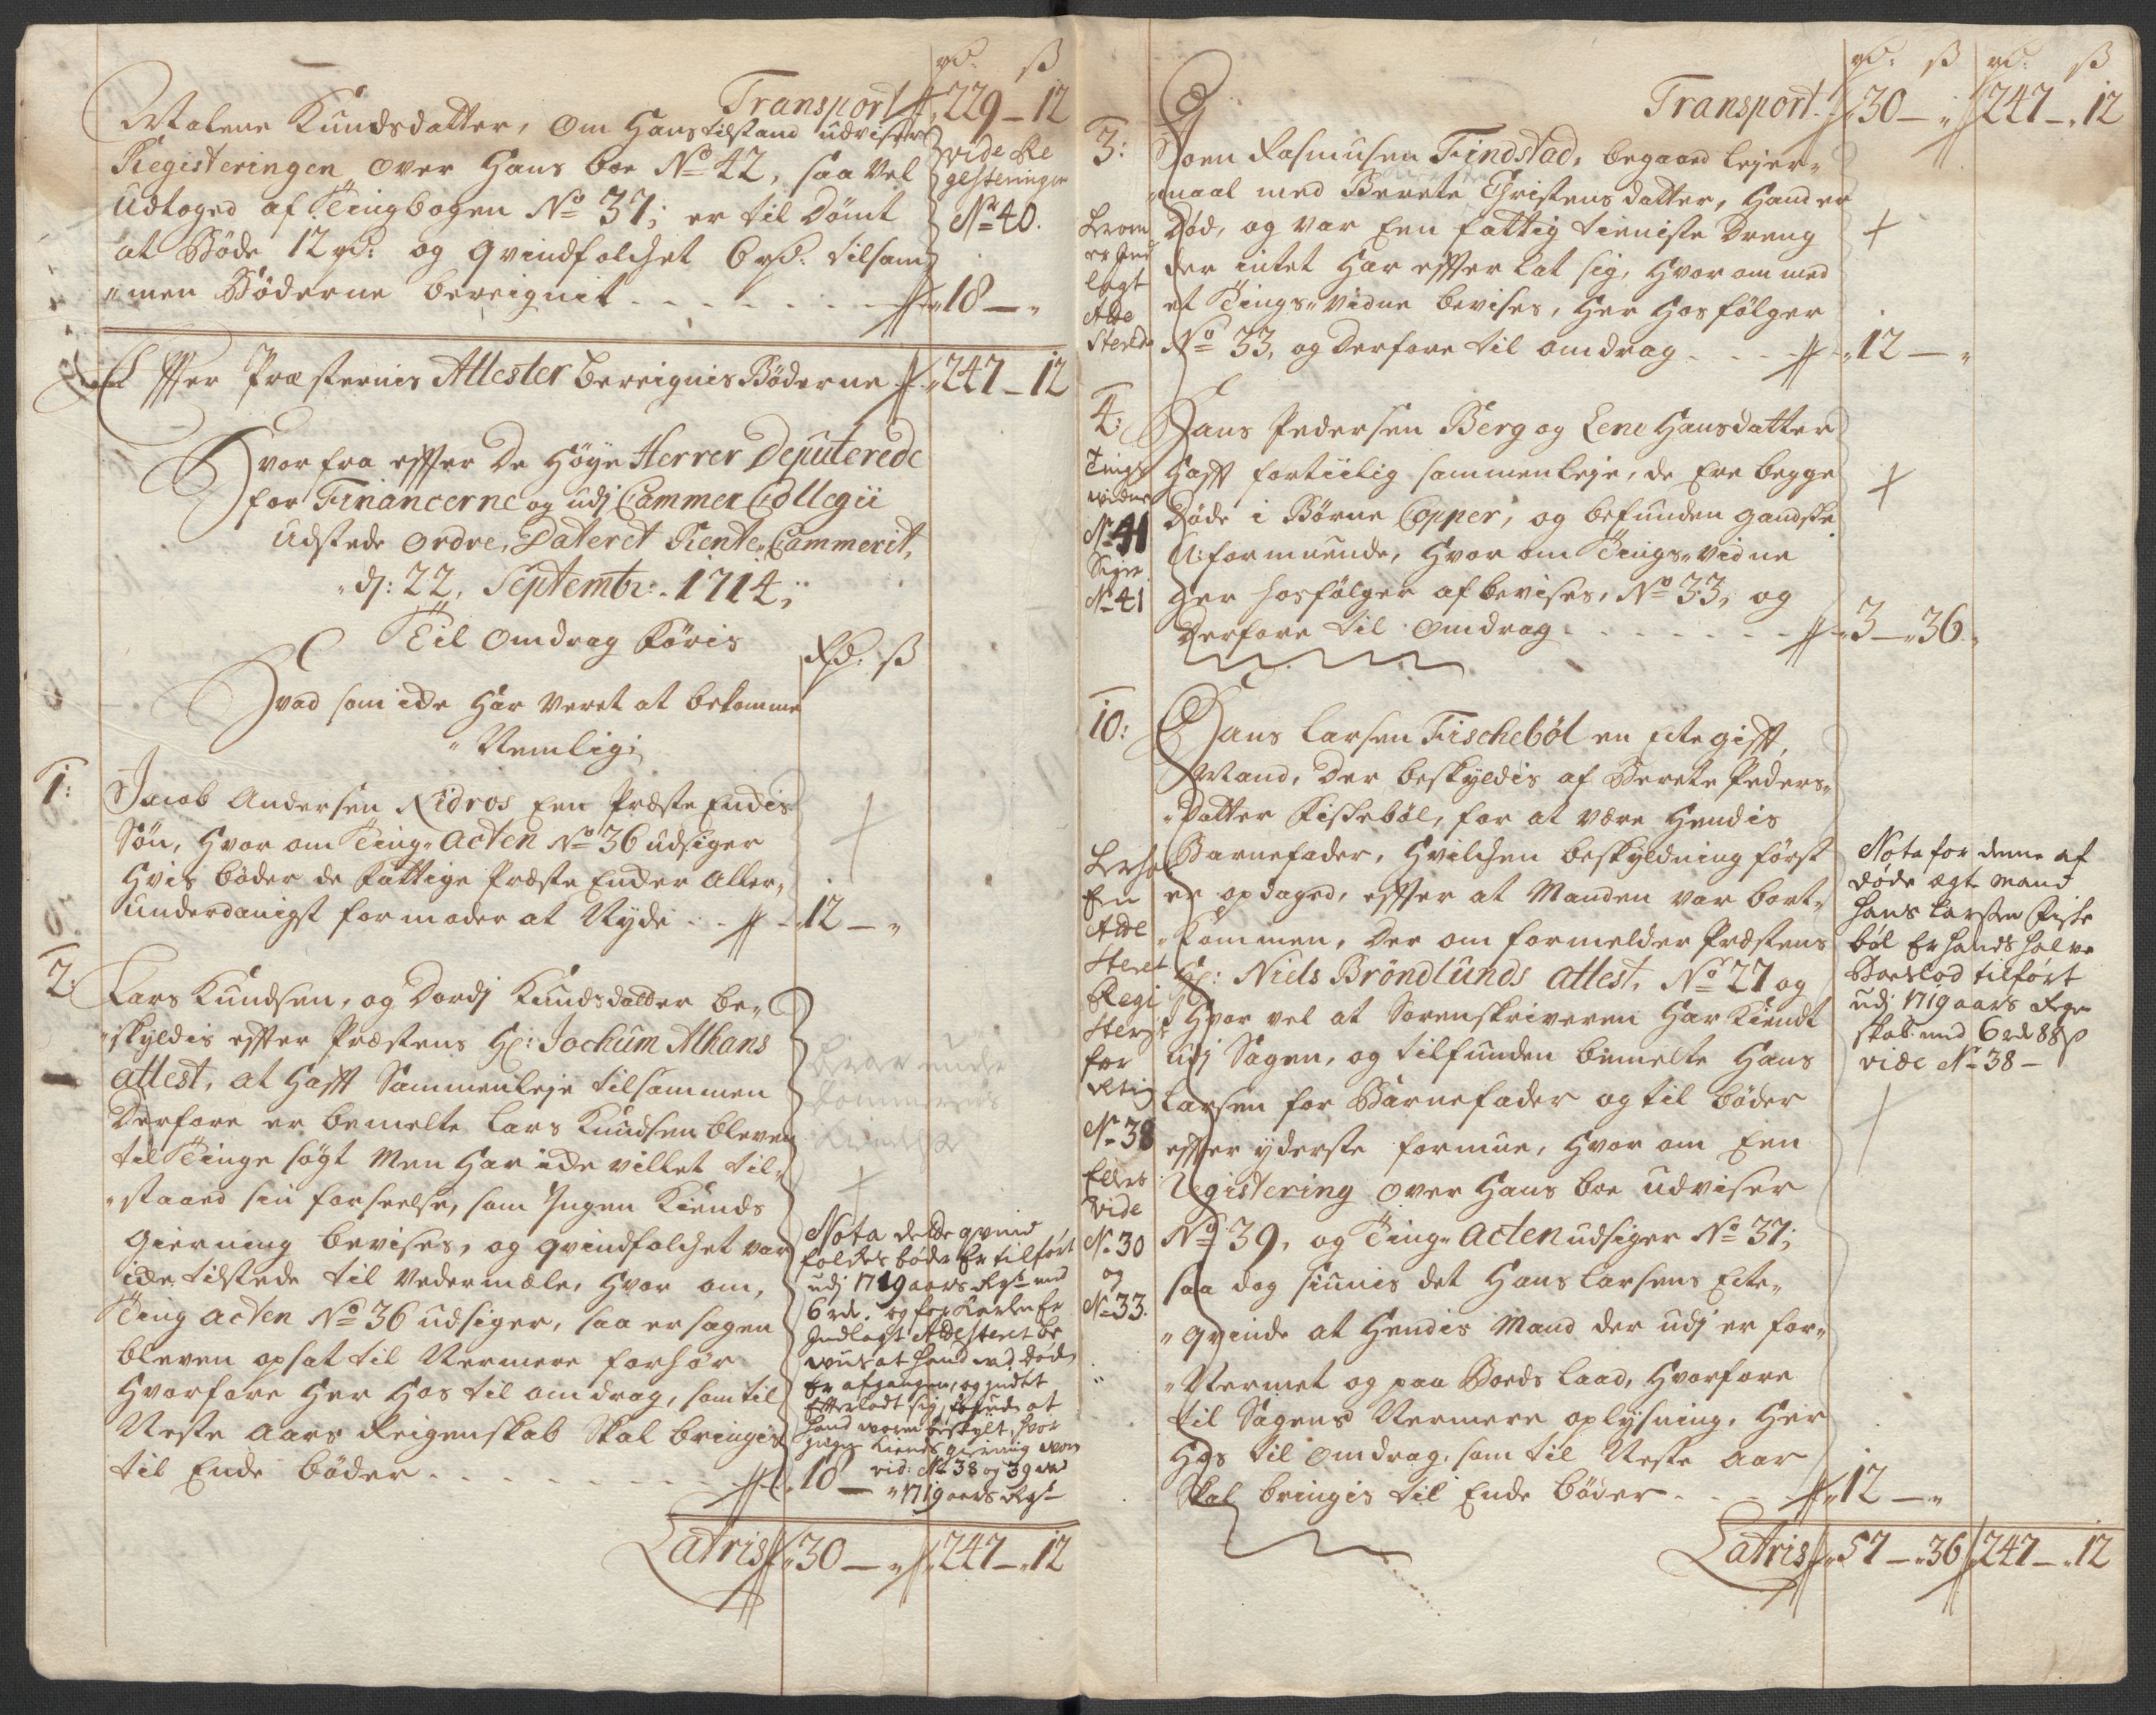 rd: ß
Transport 229 – 12
Malene Knudsdatter, om Hans tilstand udviser
Registeringen over Hans boe No 42, saa vel
Udtoged af Tingbogen No 37; er til dömt
at Bøde 12 rd: og qvindfolchet 6 rd: tilsam„
„men Bøderne bereignit 18 – „
vide Re
gesteringen
No 40.
Effter Præsternis Attester bereignis Bøderne 247 – 12
Hvor fra effter De Høye Herrer Deputerede
for Financerne og udj Cammer Collegii
udstede ordre, Dateret Rente Cammerit,
d: 22, Septembr: 1714;
Til omdrag Føris
Rd: ß
Hvad som icke Har veret at bekomme
Nemlig;
1:
Jacob Andersen Nidros Een Præste Enckis
Søn, Hvor om Ting„ acten No 36 udsiger
Hvis bøder de Fattige Præste Encker aller„
underdanigst formoder at Nyde 12 – „
2:
Lars Knudsen, og Dordj Knudsdatter be„
„skyldis effter Præstens Hr: Jochum Alhans
attest, at Hafft Sammenleje tilsammen
Derfore er bemelte Lars Knudsen bleven
til Tinge søgt Men Har icke villet til„
„staaed sin forseelse, som Ingen Kiends
Gierning bevises, og qvindfolchet var
icke tilstede til vedermæle, Hvor om,
Ting acten No 36 udsiger, saa er sagen
bleven opsat til Nermere forhör
Hvorfore Her Hos til omdrag, som til
Neste aars Reigenskab Skal bringis
til Ende bøder 18 –
Nota dette qvind
folckes bøder Er tilfört
udj 1719 aars Rgsk med
6 rd. og for Karlen Er
Indlagt Attesteret be
viis at Hand ved døde
Er afgangen, og Indtet
Efterladt sig,
Hand voren beskylt, hvor
Ingen Kiends gierning vor
vid: No 38 og 39 ved
1719 aars Rgsk
Latris 30 – „ 247 – 12
rd: ß rd: ß
Transport 30 – „ 247 – 12
3:
Joen Rasmusen Findstad, begaaed lejer„
„maal med Berete Christensdatter, Hand er
Død, og var Een fattig tieniste dreng
der intet Har effter lat sig, Hvor om med
et Tings„ vidne bevises, Her Hos følger
No 33, og derfore til omdrag 12 – „
Hvorom
er Ind
lagt
Atte
sterede
4:
Hans Pedersen Berg og Lene Hansdatter
Hafft fortiilig sammenleje, de Ere begge
Døde i Børne Copper, og befunden gandske
U:formuende, Hvor om Tings„ vidne
Her hosfølger af bevises, No 33, og
Derfore til omdrag 3 – 36
Tings
vidne
No 41
No 41
10:
Hans Larsen Fischebøl en Ecte gifft,
Mand, Der beskyldis af Berete Peders„
„datter Fiskebøl, for at være Hendis
Barnefader, Hvilchen beskyldning först
er opdaged, effter at Manden var bort„
„kommen, der om formelder Præstens
Hr: Niels Bröndlunds attest, No 27 og
Hvor vel at Sorenskriveren Har Kiendt
udj Sagen, og tilfunden bemelte Hans
Larsen for Barnefader og til bøder
effter yderste formue, Hvor om Een
Registering over Hans boe udviser
No 39, og Ting„ Acten udsiger No 37;
saa dog siunis det Hans Larsens Ecte„
„qvinde at Hendis Mand der udj er for„
„Nermet og paa Boeds laad, Hvorfore
til Sagens Nermere oplysning, Her
Hos til omdrag, som til Neste aar
Skal bringis til Ende bøder 12 – „
En
Atte
steret
Regi
stering
No 38
Ellers
vide
No 30
og
No 33.
Nota for denne af
døde ægte mand
Hans Larsen Fiske
bøl Er hands halve
Boeslod tilfört
udj 1719 aars Regn
skab med 6 rd 88 ß
vide No 38 –
Latris 57 – 36 247 – 12